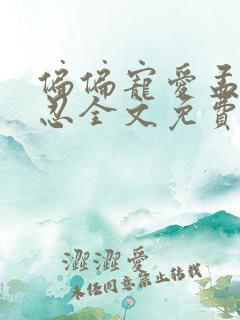 偏偏寵愛孟
忍全文免費
澀澀愛
未经同意禁止转载